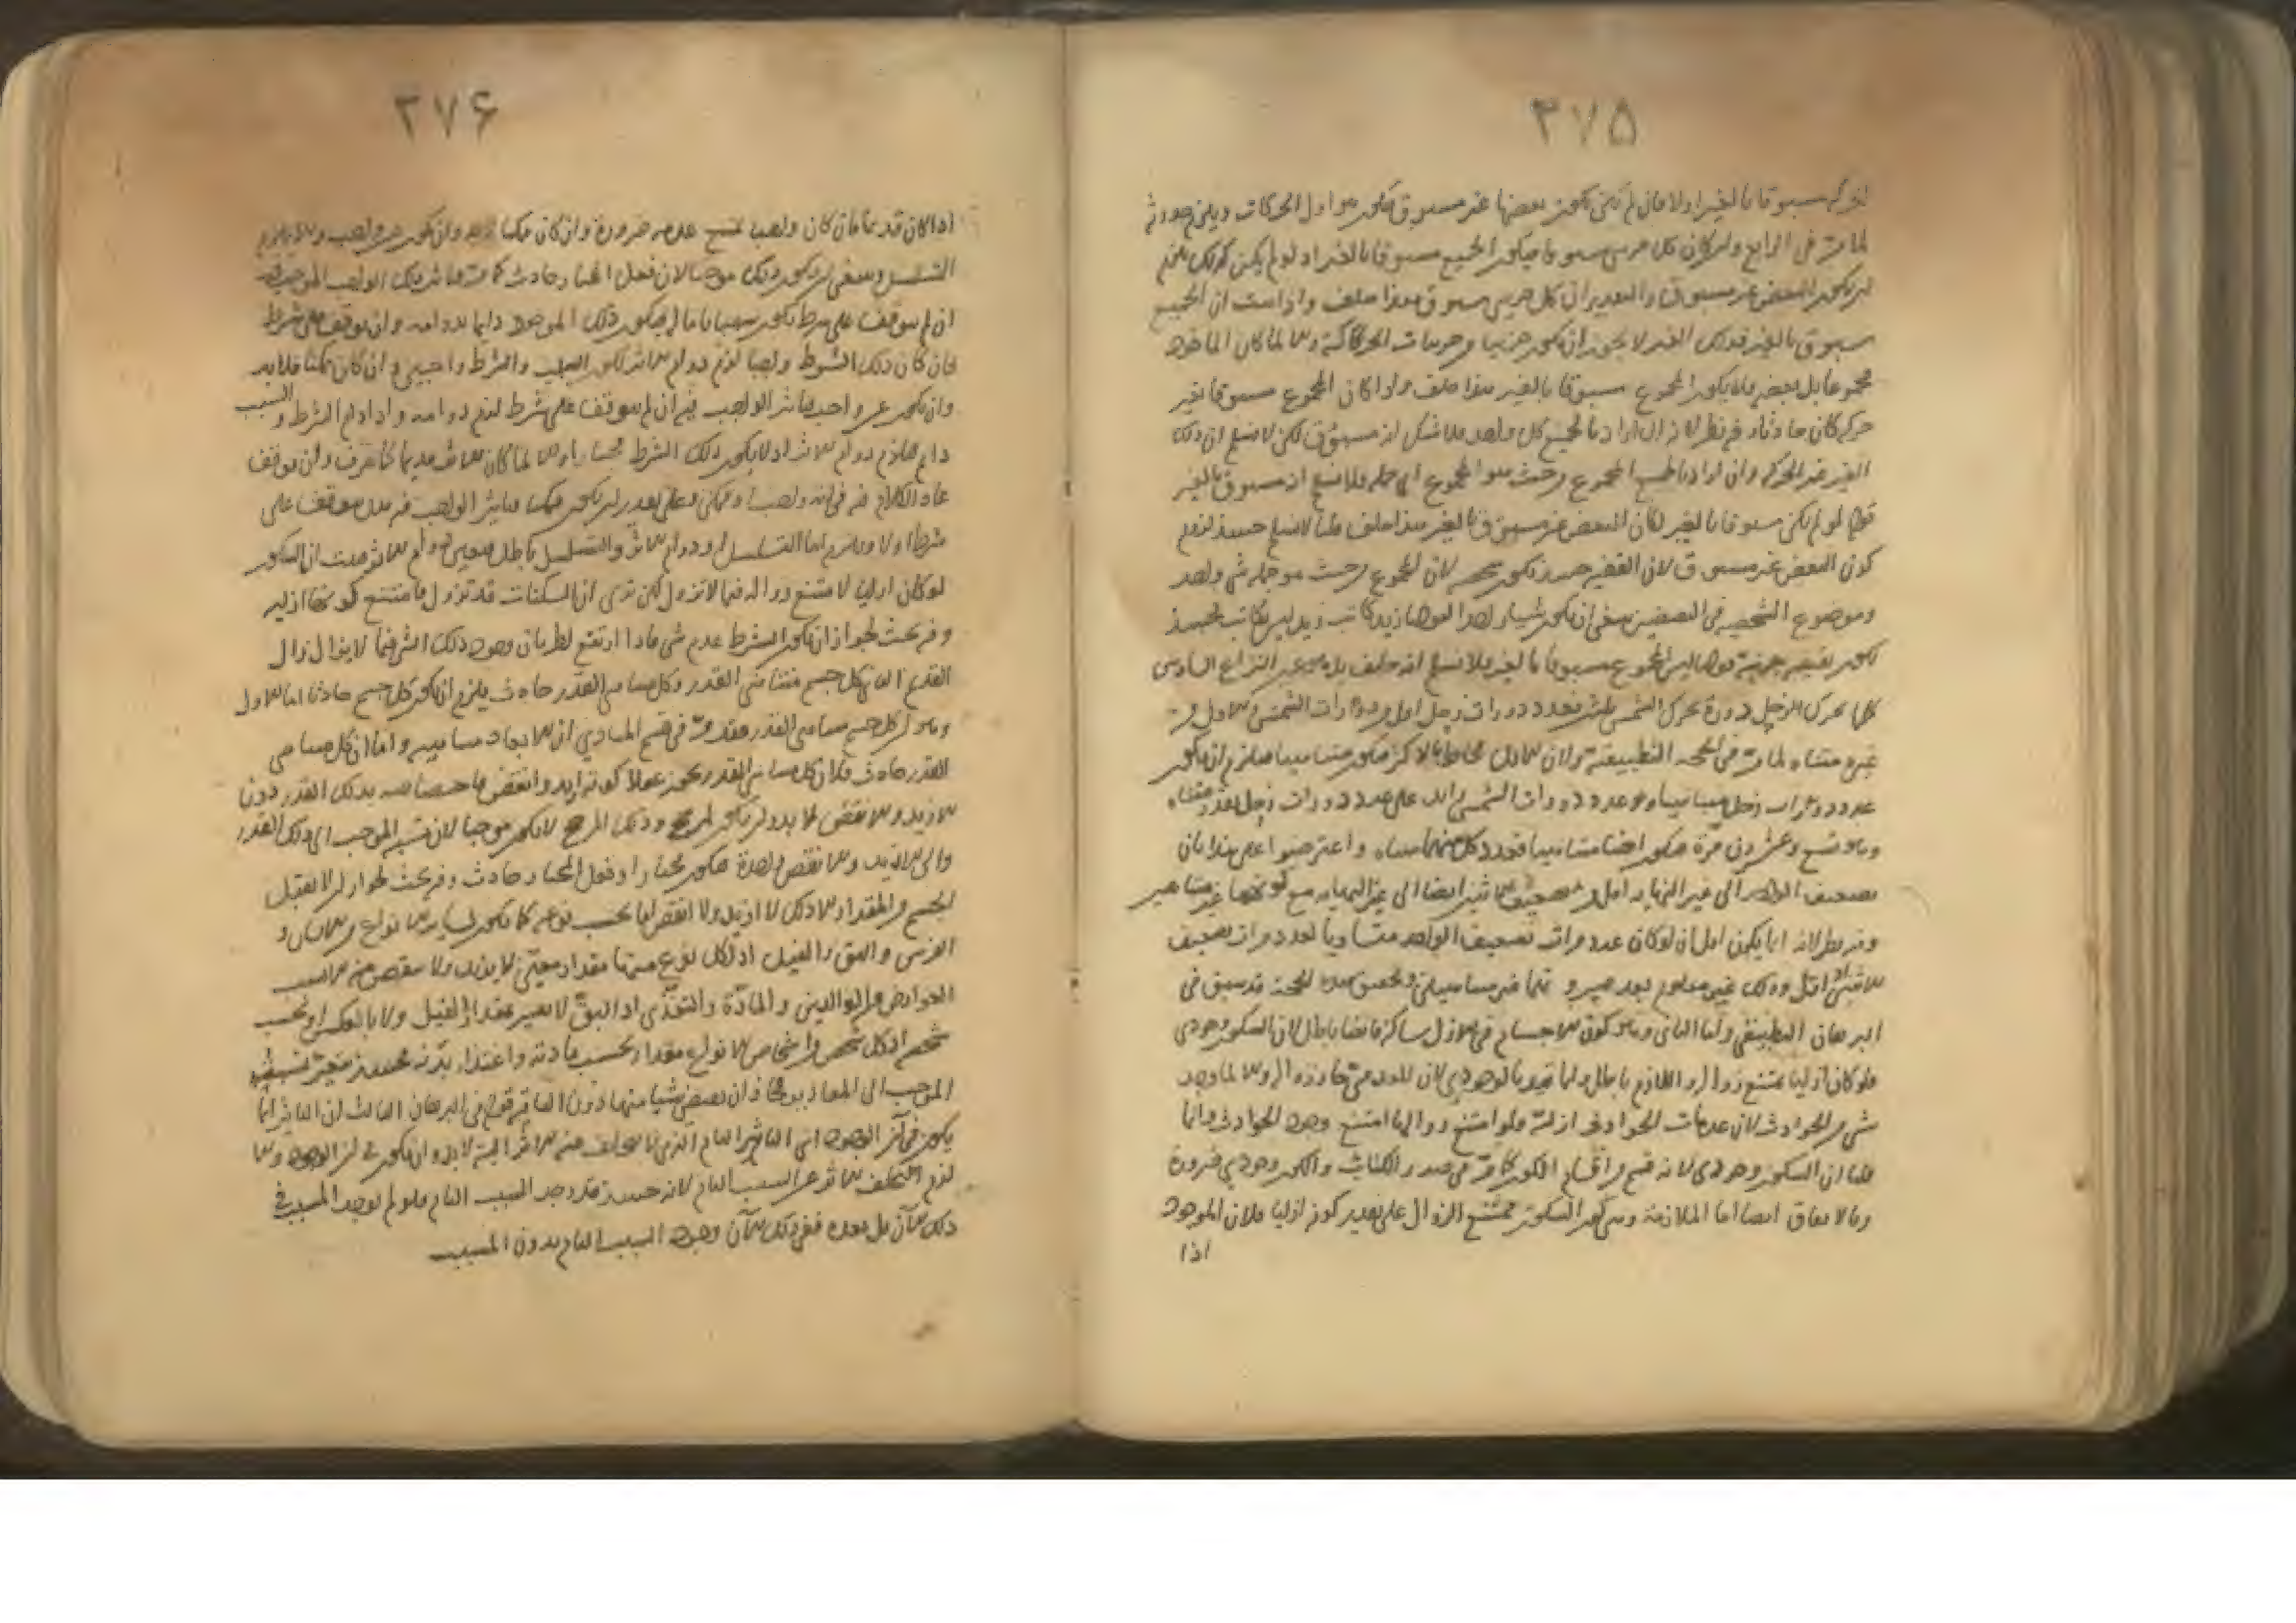 ٢٧٥
مسبوقا بالغير اولا فان لم يكن يكون بعضها غير مسبوق فيكون هو اول الحركات ويلزم حدوثه
لما مر في الرابع وان كان كل جزئي مسبوقا فيكون الجميع مسبوقا بالغير اذ لو لم يكن كذلك يلزم
ان يكون البعض غير مسبوق والتقدير ان كل جزئي مسبوق هذا خلف واذا ثبت ان الجميع
مسبوق بالغير فذلك الغير لا يجوز ان يكون جزئيا من جزئيات الحركة والا لما كان الماخوذ
مجموعا بل بعض فلا يكون المجموع مسبوقا بالغير هذا خلف واذا كان المجموع مسبوقا بغير
حركة كان حادثا وفيه نظر لانه ان اراد بالجميع كل واحد فلا شك انه مسبوق لكن لا نسلم ان ذلك
الغير غير الحركة وان اراد بالجميع المجموع من حيث هو المجموع اي جملة فلا نسلم انه مسبوق بالغير
قوله لو لم يكن مسبوقا بالغير لكان البعض غير مسبوق بالغير هذا خلف قلنا لا نسلم حينئذ لزوم
كون البعض غير مسبوق لان القضية حينئذ تكون شخصية لان المجموع من حيث هو جملة شيء واحد
وموضوع الشخصية في النقيضين ينبغي ان يكون شيئا واحدا كقولنا زيد كاتب زيد ليس بكاتب فحينئذ
يكون نقيضه جزئية قولنا ليس المجموع مسبوقا بالغير فلا نسلم انه خلف بل هو عين النزاع السادس
كلما تحرك الزحل دورة تحرك الشمس ثلثين فعدد دورات زحل اقل من دورات الشمس والاول
غير متناه لما مر في الحجة التطبيقية ولان الاقل محاط بالاكثر فيكون متناهيا فيلزم ان يكون
عدد دورات زحل متناهيا وعدد دورات الشمس زايد على عدد دورات زحل بقدر متناه
وهو تسع وعشرون مرة فيكون ايضا متناهيا فعدد كل منهما متناه واعترضوا على هذا بان
تضعيف الواحد الى غير النهاية اقل من تضعيف الاثنين ايضا الى غير النهاية مع كونهما غير متناهيين
وفيه نظر لانه انما يكون اقل ان لو كان عدد مرات تضعيف الواحد متساويا لعدد مرات تضعيف
الاثنين اقل وذلك غير معلوم بعد صيرورتهما غير متناهيين وتحقيق هذه الحجة قد سبق في
البرهان التطبيقي واما الثاني وهو كون الاجسام في الازل ساكنة فايضا باطل لان السكون وجودي
فلو كان ازليا يمتنع زواله واللازم باطل وانما قيد بالوجودي لان العدمي جاز زواله والا لما وجد
شيء من الحوادث لان عدمات الحوادث ازلية فلو امتنع زوالها امتنع وجود الحوادث وانما
قلنا ان السكون وجودي لانه قسم من اقسام الكون كما مر في صدر الكتاب والكون وجودي ضرورة
وبالاتفاق ايضا اما الملازمة وهي كون السكون ممتنع الزوال على تقدير كونه ازليا فلان الموجود
اذا
٢٧۶
اذا كان قديما فان كان واجبا يمتنع عدمه ضرورة وان كان ممكنا فلابد وان يكون من واجب والا يلزم
التسلسل وينبغي ان يكون ذلك موجبا لان فعل المختار حادث كما مر فتاثير ذلك الواجب الموجب فيه
ان لم يتوقف على شرط يكون سببا تاما له فيكون ذلك الموجود دايما بدوامه وان توقف على شرط
فان كان ذلك الشرط واجبا لزم دوام الاثر لكون السبب والشرط واجبين وان كان ممكنا فلابد
وان يكون عن واجب فتاثير الواجب فيه ان لم يتوقف على شرط لزم دوامه واذا دام الشرط والسبب
دايم فلزم دوام الاثر اذ لا يكون ذلك الشرط مختارا والا لما كان الاثر قديما لما عرف وان توقف
عاد الكلام فيه في انه واجب او ممكن وعلى تقدير ان يكون ممكنا فتاثير الواجب فيه هل يتوقف على
شرط او لا ويلزم اما التسلسل او دوام الاثر والتسلسل باطل فتعين دوام الاثر فثبت ان السكون
لو كان ازليا لامتنع زواله فيما لا يزال لكن نرى ان السكنات قد تزول فامتنع كونها ازلية
وفيه بحث لجواز ان يكون الشرط عدم شيء فاذا ارتفع لطريان وجود ذلك الشيء فيما لا يزال زال
القديم الثاني كل جسم متناهي القدر وكل متناهي القدر حادث يلزم ان يكون كل جسم حادثا اما الاول
وهو ان كل جسم متناهي القدر فقد مر في قسم المبادي ان الابعاد متناهية واما ان كل متناهي
القدر حادث فلان كل متناهي القدر يجوز عقلا كونه ازيد وانقص فاختصاصه بذلك القدر دون
الازيد والانقص لا بد وان يكون لمرجح وذلك المرجح لا يكون موجبا لان نسبة الموجب الى ذلك القدر
والى الازيد والانقص واحدة فيكون مختارا وفعل المختار حادث وفيه بحث لجواز ان لا يقبل
الجسم من المقدار الا ذلك لا ازيد ولا انقص اما بحسب نوعه كما يكون لساير الانواع من الانسان و
الفرس والبق والفيل اذ لكل نوع منها مقدار معين لا يزيد ولا ينقص منه بسبب
العوارض من الوالدين والمادة والتغذي اذ البق لا يصير مقدار الفيل ولا بالعكس او بحسب
شخصه اذ كل شخص من اشخاص الانواع مقدار بحسب مادته واغتذاء بدنه فحينئذ نسبة
الموجب الى المقادير وان يقتضي شيئا منها دون الباقي قوله في البرهان الثالث ان التاثير انما
يكون في آن الوجود اي التاثير التام الذي لا يتخلف عنه الاثر البتة لابد وان يكون في آن الوجود والا
لزم تخلف الاثر عن السبب التام لانه حينئذ قد وجد السبب التام فلو لم يوجد المسبب في
ذلك الآن بل بعده ففي ذلك الآن وجود السبب التام بدون المسبب